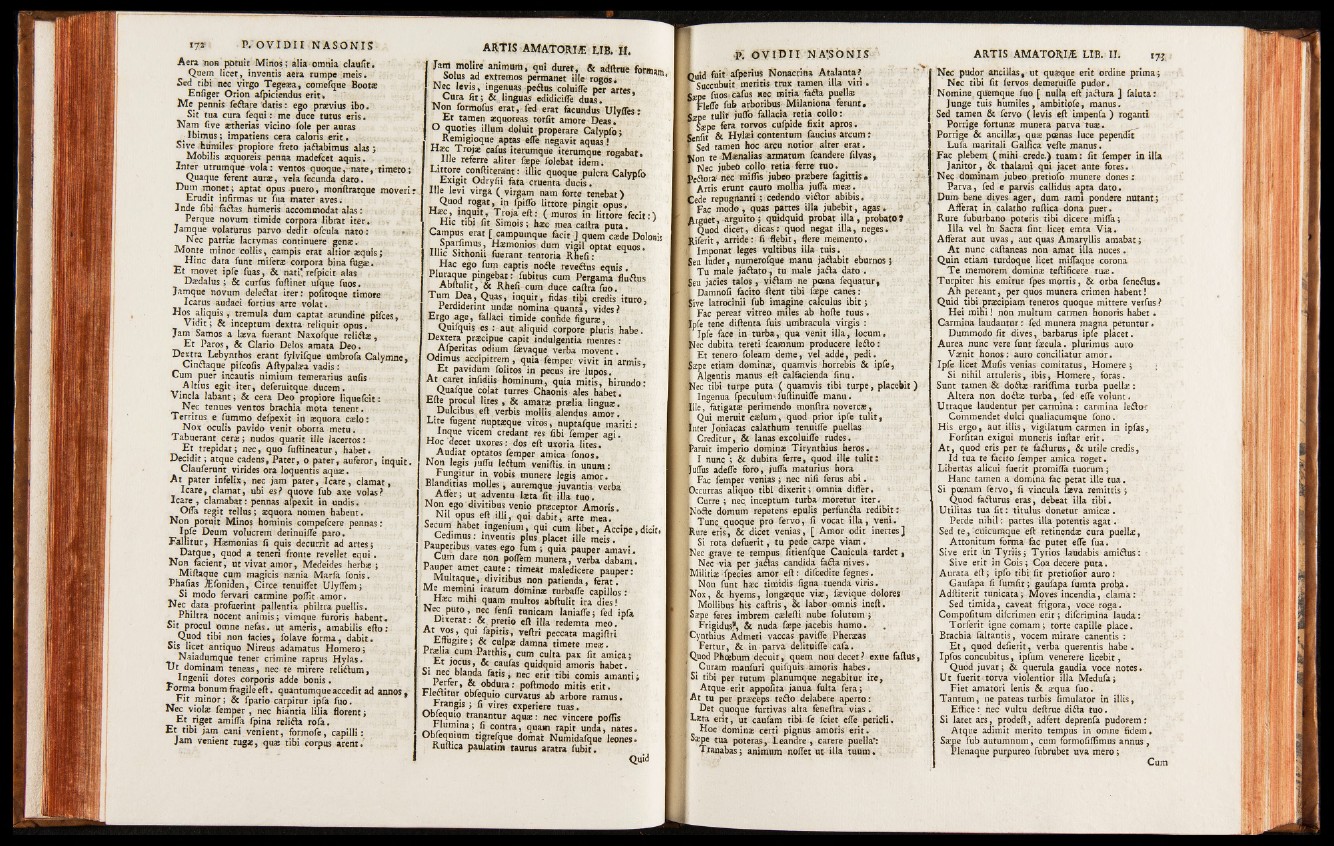 172 P. OVIDII NASONIS
Aera non potuit Minos; alia omnia clausit.
Quem licet, inventis aera rumpe meis.
Sed tibi nec virgo Tegeæa, comesque Bootæ
Ensiger Orion aspiciendus erit.
Me pennis sectare datis: ego prævius ibo.
Sit tua cura sequi: me duce tutus eris.
Nam sive ætherias vicino sole per auras
Ibimus; impatiens cera caloris erit.
Sive humiles propiore freto jactabimus alas;
Mobilis æquoreis penna madescet aquis.
Inter utrumque vola: ventos quoque, nate, timeto;
Quaque ferent auræ, vela secunda dato.
Dum monet; aptat opus puero, monstratque moveri:
Erudit infirmas ut sua mater aves.
Inde sibi factas humeris accommodat alas:
Perque novum timide corpora librat iter.
Jamque volaturus parvo dedit oscula nato:
Nec patriæ lacrymas continuere genæ.
Monte minor collis, campis erat altior æquis;
Hinc data sunt miseræ corpora bina fugæ.
Et movet ipse suas, & nati respicit alas
Dædalus; & cursus sustinet usque suos.
Jamque novum delectat iter: positoque timore
Icarus audaci fortius arte volat.
Hos aliquis, tremula dum captat arundine pisces,
Vidit; & inceptum dextra reliquit opus.
Jam Samos a læva fuerant Naxosque relictæ,
Et Paros, & Clario Delos amata Deo.
Dextra Lebynthos erant sylvisque umbrosa Calymne,
Cinctaque piscosis Astypalæa vadis:
Cum puer incautis nimium temerarius ausis
Altius egit iter, deseruitque ducem.
Vincla labant; & cera Deo propiore liquescit:
Nec tenues ventos brachia mota tenent.
Territus e summo despexit in æquora cælo:
Nox oculis pavido venit oborta metu.
Tabuerant ceræ; nudos quatit ille lacertos:
Et trepidat; nec, quo sustineatur, habet.
Decidit; atque cadens, Pater, o pater, auferor, inquit.
Clauserunt virides ora loquentis aquæ.
At pater infelix, nec jam pater, Icare, clamat,
Icare, clamat, ubi es? quove sub axe volas?
Icare, clamabat: pennas aspexit in undis.
Ossa tegit tellus; æquora nomen habent.
Non potuit Minos hominis compescere pennas:
Ipse Deum volucrem detinuisse paro.
Fallitur, Hæmonias si quis decurrit ad artes;
Datque, quod a teneri fronte revellet equi.
Non facient, ut vivat amor, Medeides herbæ;
Mistaque cum magicis nænia Marsa sonis.
Phasias Æsoniden, Circe tenuisset Ulyssem;
Si modo servari carmine possit amor.
Nec data profuerint pallentia philtra puellis.
Philtra nocent animis; vimque furoris habent.
Sit procul omne nefas. ut ameris, amabilis esto:
Quod tibi non facies, solave forma, dabit.
Sis licet antiquo Nireus adamatus Homero;
Naiadumque tener crimine raptus Hylas.
Ut dominam teneas, nec te mirere relictum,
Ingenii dotes corporis adde bonis.
Forma bonum fragile est. quantumque accedit ad annos,
Fit minor; & spatio carpitur ipsa suo.
Nec violæ semper, nec hiantia lilia florent;
Et riget amissa spina relicta rosa.
Et tibi jam cani venient, formose, capilli:
Jam venient rugæ, quæ tibi corpus arent.
ARTIS AMATORIÆ LIB. II.
Jam molire animum, qui duret, & adstrue formam.
Solus ad extremos permanet ille rogos.
Nec levis, ingenuas pectus coluisse per artes,
Cura sit; & linguas edidicisse duas.
Non formosus erat, sed erat facundus Ulysses:
Et tamen æquoreas torsit amore Deas.
O quoties illum doluit properare Calypso;
Remigioque aptas esse negavit aquas!
Hæc Trojæ casus iterumque iterumque rogabat.
Ille referre aliter sæpe solebat idem.
Littore constiterant: illic quoque pulcra Calypso
Exigit Odrysii fata cruenta ducis.
Ille levi virga (virgam nam forte tenebat)
Quod rogat, in spisso littore pingit opus.
Hæc, inquit, Troja est: (muros in littore fecit:)
Hic tibi sit Simois; hæc mea castra puta.
Campus erat [campumque facit] quem cæde Dolonis
Sparsimus, Hæmonios dum vigil optat equos.
Illic Sithonii fuerant tentoria Rhesi:
Hac ego sum captis nocte revectus equis.
Pluraque pingebat: subitus cum Pergama fluctus
Abstulit, & Rhesi cum duce castra suo.
Tum Dea, Quas, inquit, fidas tibi credis ituro,
Perdiderint undæ nomina quanta, vides?
Ergo age, fallaci timide confide figuræ,
Quisquis es: aut aliquid corpore pluris habe.
Dextera præcipue capit indulgentia mentes:
Asperitas odium sævaque verba movent.
Odimus accipitrem, quia semper vivit in armis,
Et pavidum solitos in pecus ire lupos.
At caret insidiis hominum, quia mitis, hirundo:
Quasque colat turres Chaonis ales habet.
Este procul lites, & amaræ prælia linguæ.
Dulcibus est verbis mollis alendus amor.
Lite fugent nuptæque viros, nuptasque mariti:
Inque vicem credant res sibi semper agi.
Hoc decet uxores: dos est uxoria lites.
Audiat optatos semper amica sonos.
Non legis jussu lectum venistis in unum:
Fungitur in vobis munere legis amor.
Blanditias molles, auremque juvantia verba
Affer; ut adventu læta sit illa tuo.
Non ego divitibus venio præceptor Amoris.
Nil opus est illi, qui dabit, arte mea.
Secum habet ingenium, qui cum libet, Accipe, dicit,
Cedimus: inventis plus placet ille meis.
Pauperibus vates ego sum; quia pauper amavi.
Cum dare non possem munera, verba dabam.
Pauper amet caute: timeat maledicere pauper:
Multaque, divitibus non patienda, ferat.
Me memini iratum dominæ turbasse capillos:
Hæc mihi quam multos abstulit ira dies!
Nec puto, nec sensi tunicam laniasse; sed ipsa
Dixerat: & pretio est illa redemta meo.
At vos, qui sapitis, vestri peccata magistri
Effugite; & culpæ damna timete meæ.
Prælia cum Parthis, cum culta pax sit amica;
Et jocus, & causas quidquid amoris habet.
Si nec blanda satis, nec erit tibi comis amanti;
Perfer, & obdura: postmodo mitis erit.
Flectitur obsequio curvatus ab arbore ramus.
Frangis; si vires experiere tuas.
Obsequio tranantur aquæ: nec vincere possis
Flumina; si contra, quam rapit unda, nates.
Obsequium tigresque domat Numidasque leones.
Rustica paulatim taurus aratra subit.
Quid
P. OVIDII NASONIS
Quid fuit asperius Nonacrina Atalanta?
Succubuit meritis trux tamen illa viri.
Sæpe suos casus nec mitia facta puellæ
Flesse sub arboribus Milaniona ferunt.
Sæpe tulit jusso fallacia retia collo:
Sæpe fera torvos cuspide fixit apros.
Sensit & Hylæi contentum saucius arcum:
Sed tamen hoc arcu notior alter erat.
Non te Mænalias armatum scandere silvas,
Nec jubeo collo retia ferre tuo.
Pectora nec missis jubeo præbere sagittis.
Artis erunt cauto mollia jussa meæ.
Cede repugnanti: cedendo victor abibis.
Fac modo, quas partes illa jubebit, agas.
Arguet, arguito; quidquid probat illa, probato:
Quod dicet, dicas: quod negat illa, neges.
Riserit, arride: si flebit, flere memento.
Imponat leges vultibus illa tuis.
Seu ludet, numerosque manu jactabit eburnos;
Tu male jactato, tu male jacta dato.
Seu jacies talos, victam ne pœna sequatur,
Damnosi facito stent tibi sæpe canes:
Sive latrocinii sub imagine calculus ibit;
Fac pereat vitreo miles ab hoste tuus.
Ipse tene distenta suis umbracula virgis:
Ipse face in turba, qua venit illa, locum.
Nec dubita tereti scamnum producere lecto:
Et tenero soleam deme, vel adde, pedi.
Sæpe etiam dominæ, quamvis horrebis & ipse,
Algentis manus est calfacienda sinu.
Nec tibi turpe puta (quamvis tibi turpe, placebit)
Ingenua speculum sustinuisse manu.
Ille, fatigatæ perimendo monstra novercæ,
Qui meruit cælum, quod prior ipse tulit,
Inter Joniacas calathum tenuisse puellas
Creditur, & lanas excoluisse rudes.
Paruit imperio dominæ Tirynthius heros.
I nunc; & dubita ferre, quod ille tulit:
Jussus adesse foro, jussa maturius hora
Fac semper venias; nec nisi serus abi.
Occurras aliquo tibi dixerit; omnia differ.
Curre; nec inceptum turba moretur iter.
Nocte domum repetens epulis perfuncta redibit:
Tunc quoque pro servo, si vocat illa, veni.
Rure eris, & dicet venias, [Amor odit inertes]
Si rota defuerit, tu pede carpe viam.
Nec grave te tempus sitiensque Canicula tardet,
Nec via per jactas candida facta nives.
Militiæ species amor est: discedite segnes.
Non sunt hæc timidis signa tuenda viris.
Nox, & hyems, longæque viæ, sævique dolores
Mollibus his castris, & labor omnis inest.
Sæpe feres imbrem cælesti nube solutum;
Frigidus, & nuda sæpe jacebis humo.
Cynthius Admeti vaccas pavisse Pheræas
Fertur, & in parva delituisse casa.
Quod Phœbum decuit, quem non decet? exue fastus,
Curam mansuri quisquis amoris habes.
Si tibi per tutum planumque negabitur ire,
Atque erit apposita janua fulta sera;
At tu per præceps tecto delabere aperto:
Det quoque furtivas alta fenestra vias.
Læta erit, ut causam tibi se sciet esse pericli.
Hoc dominæ certi pignus amoris erit.
Sæpe tua poteras, Leandre, carere puella:
Tranabas; animum nosset ut illa tuum.
ARTIS AMATORIÆ LIB. II. 173
Nec pudor ancillas, ut quæque erit ordine prima;
Nec tibi sit servos demeruisse pudor.
Nomine quemque suo [nulla est jactura] saluta:
Junge tuis humiles, ambitiose, manus.
Sed tamen & servo (levis est impensa) roganti
Porrige fortunæ munera parva tuæ.
Porrige & ancillæ, quæ pœnas luce pependit
Lusa maritali Gallica veste manus.
Fac plebem (mihi crede) tuam: sit semper in illa
Janitor, & thalami qui jacet ante fores.
Nec dominam jubeo pretioso munere dones:
Parva, sed e parvis callidus apta dato.
Dum bene dives ager, dum rami pondere nutant;
Afferat in calatho rustica dona puer.
Rure suburbano poteris tibi dicere missa;
Illa vel in Sacra sint licet emta Via.
Afferat aut uvas, aut quas Amaryllis amabat;
At nunc castaneas non amat illa nuces.
Quin etiam turdoque licet missaque corona
Te memorem dominæ testificere tuæ.
Turpiter his emitur spes mortis, & orba senectus.
Ah pereant, per quos munera crimen habent!
Quid tibi præcipiam teneros quoque mittere versus?
Hei mihi! non multum carmen honoris habet.
Carmina laudantur: sed munera magna petuntur.
Dummodo sit dives, barbarus ipse placet.
Aurea nunc vere sunt sæcula. plurimus auro
Vænit honos: auro conciliatur amor.
Ipse licet Musis venias comitatus, Homere;
Si nihil attuleris, ibis, Homere, foras.
Sunt tamen & doctæ rarissima turba puellæ:
Altera non doctæ turba, sed esse volunt.
Utraque laudentur per carmina: carmina lector
Commendet dulci qualiacumque sono.
His ergo, aut illis, vigilatum carmen in ipsas,
Forsitan exigui muneris instar erit.
At, quod eris per te facturus, & utile credis,
Id tua te facito semper amica roget.
Libertas alicui fuerit promissa tuorum;
Hanc tamen a domina fac petat ille tua.
Si pœnam servo, si vincula sæva remittis;
Quod facturus eras, debeat illa tibi.
Utilitas tua sit: titulus donetur amicæ.
Perde nihil: partes illa potentis agat.
Sed te, cuicumque est retinendæ cura puellæ,
Attonitum forma fac putet esse sua.
Sive erit in Tyriis; Tyrios laudabis amictus:
Sive erit in Cois; Coa decere puta.
Aurata est; ipso tibi sit pretiosior auro:
Gausapa si sumsit; gausapa sumta proba.
Adstiterit tunicata; Moves incendia, clama:
Sed timida, caveat frigora, voce roga.
Compositum discrimen erit; discrimina lauda:
Torserit igne comam; torte capille place.
Brachia saltantis, vocem mirare canentis:
Et, quod desierit, verba querentis habe.
Ipsos concubitus, ipsum venerere licebit,
Quod juvat; & querula gaudia voce notes.
Ut fuerit torva violentior illa Medusa;
Fiet amatori lenis & æqua suo.
Tantum, ne pateas turbis simulator in illis,
Effice: nec vultu destrue dicta tuo.
Si latet ars, prodest, adfert deprensa pudorem:
Atque adimit merito tempus in omne fidem.
Sæpe sub autumnum, cum formosissimus annus,
Plenaque purpureo subrubet uva mero;
Cum